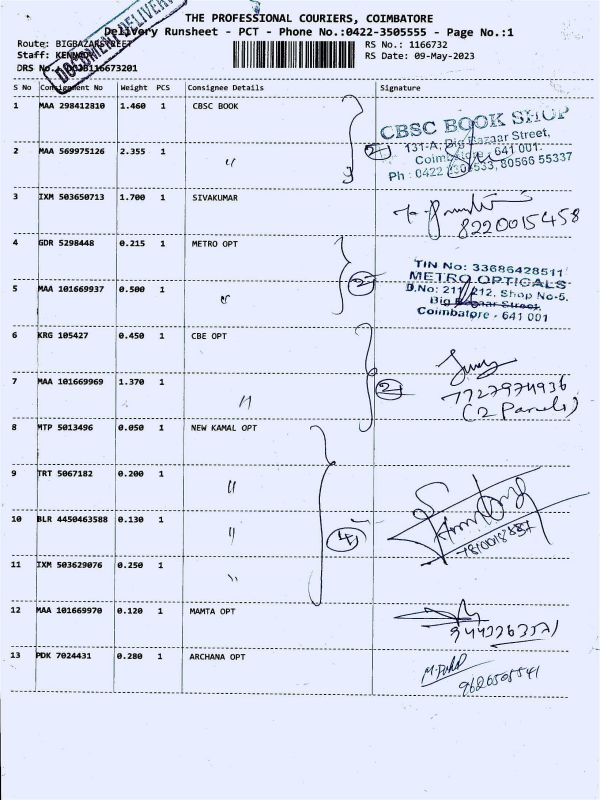 DOCUMENT DELIVERY
THE PROFESSIONAL COURIERS, COIMBATORE
Delivery Runsheet - PCT - Phone No.:0422-3505555 - Page No.:1
Route: BIGBAZARSTREET
RS No.: 1166732
Staff: KENNADY
RS Date: 09-May-2023
DRS No.: 116673201
S No Consignment No Weight PCS Consignee Details Signature
1 MAA 298412810 1.460 1 CBSC BOOK
CBSC BOOK SHOP
131-A, Big Bazaar Street,
Coimbatore - 641 001.
Ph : 0422 533, 80566 55337
2 MAA 569975126 2.355 1 〃 2
3 IXM 503650713 1.700 1 SIVAKUMAR
8220015458
4 GDR 5298448 0.215 1 METRO OPT
TIN No: 33686428511
METRO OPTICALS
D.No: 211, 212, Shop No-5.
Big Bazaar Street,
Coimbatore - 641 001
5 MAA 101669937 0.500 1 〃 2
6 KRG 105427 0.450 1 CBE OPT
7 MAA 101669969 1.370 1 〃 2
7727974936
(2 Parcels)
8 MTP 5013496 0.050 1 NEW KAMAL OPT
9 TRT 5067182 0.200 1 〃
10 BLR 4450463588 0.130 1 〃 4
11 IXM 503629076 0.250 1 〃
12 MAA 101669970 0.120 1 MAMTA OPT
13 PDK 7024431 0.280 1 ARCHANA OPT
9626505541